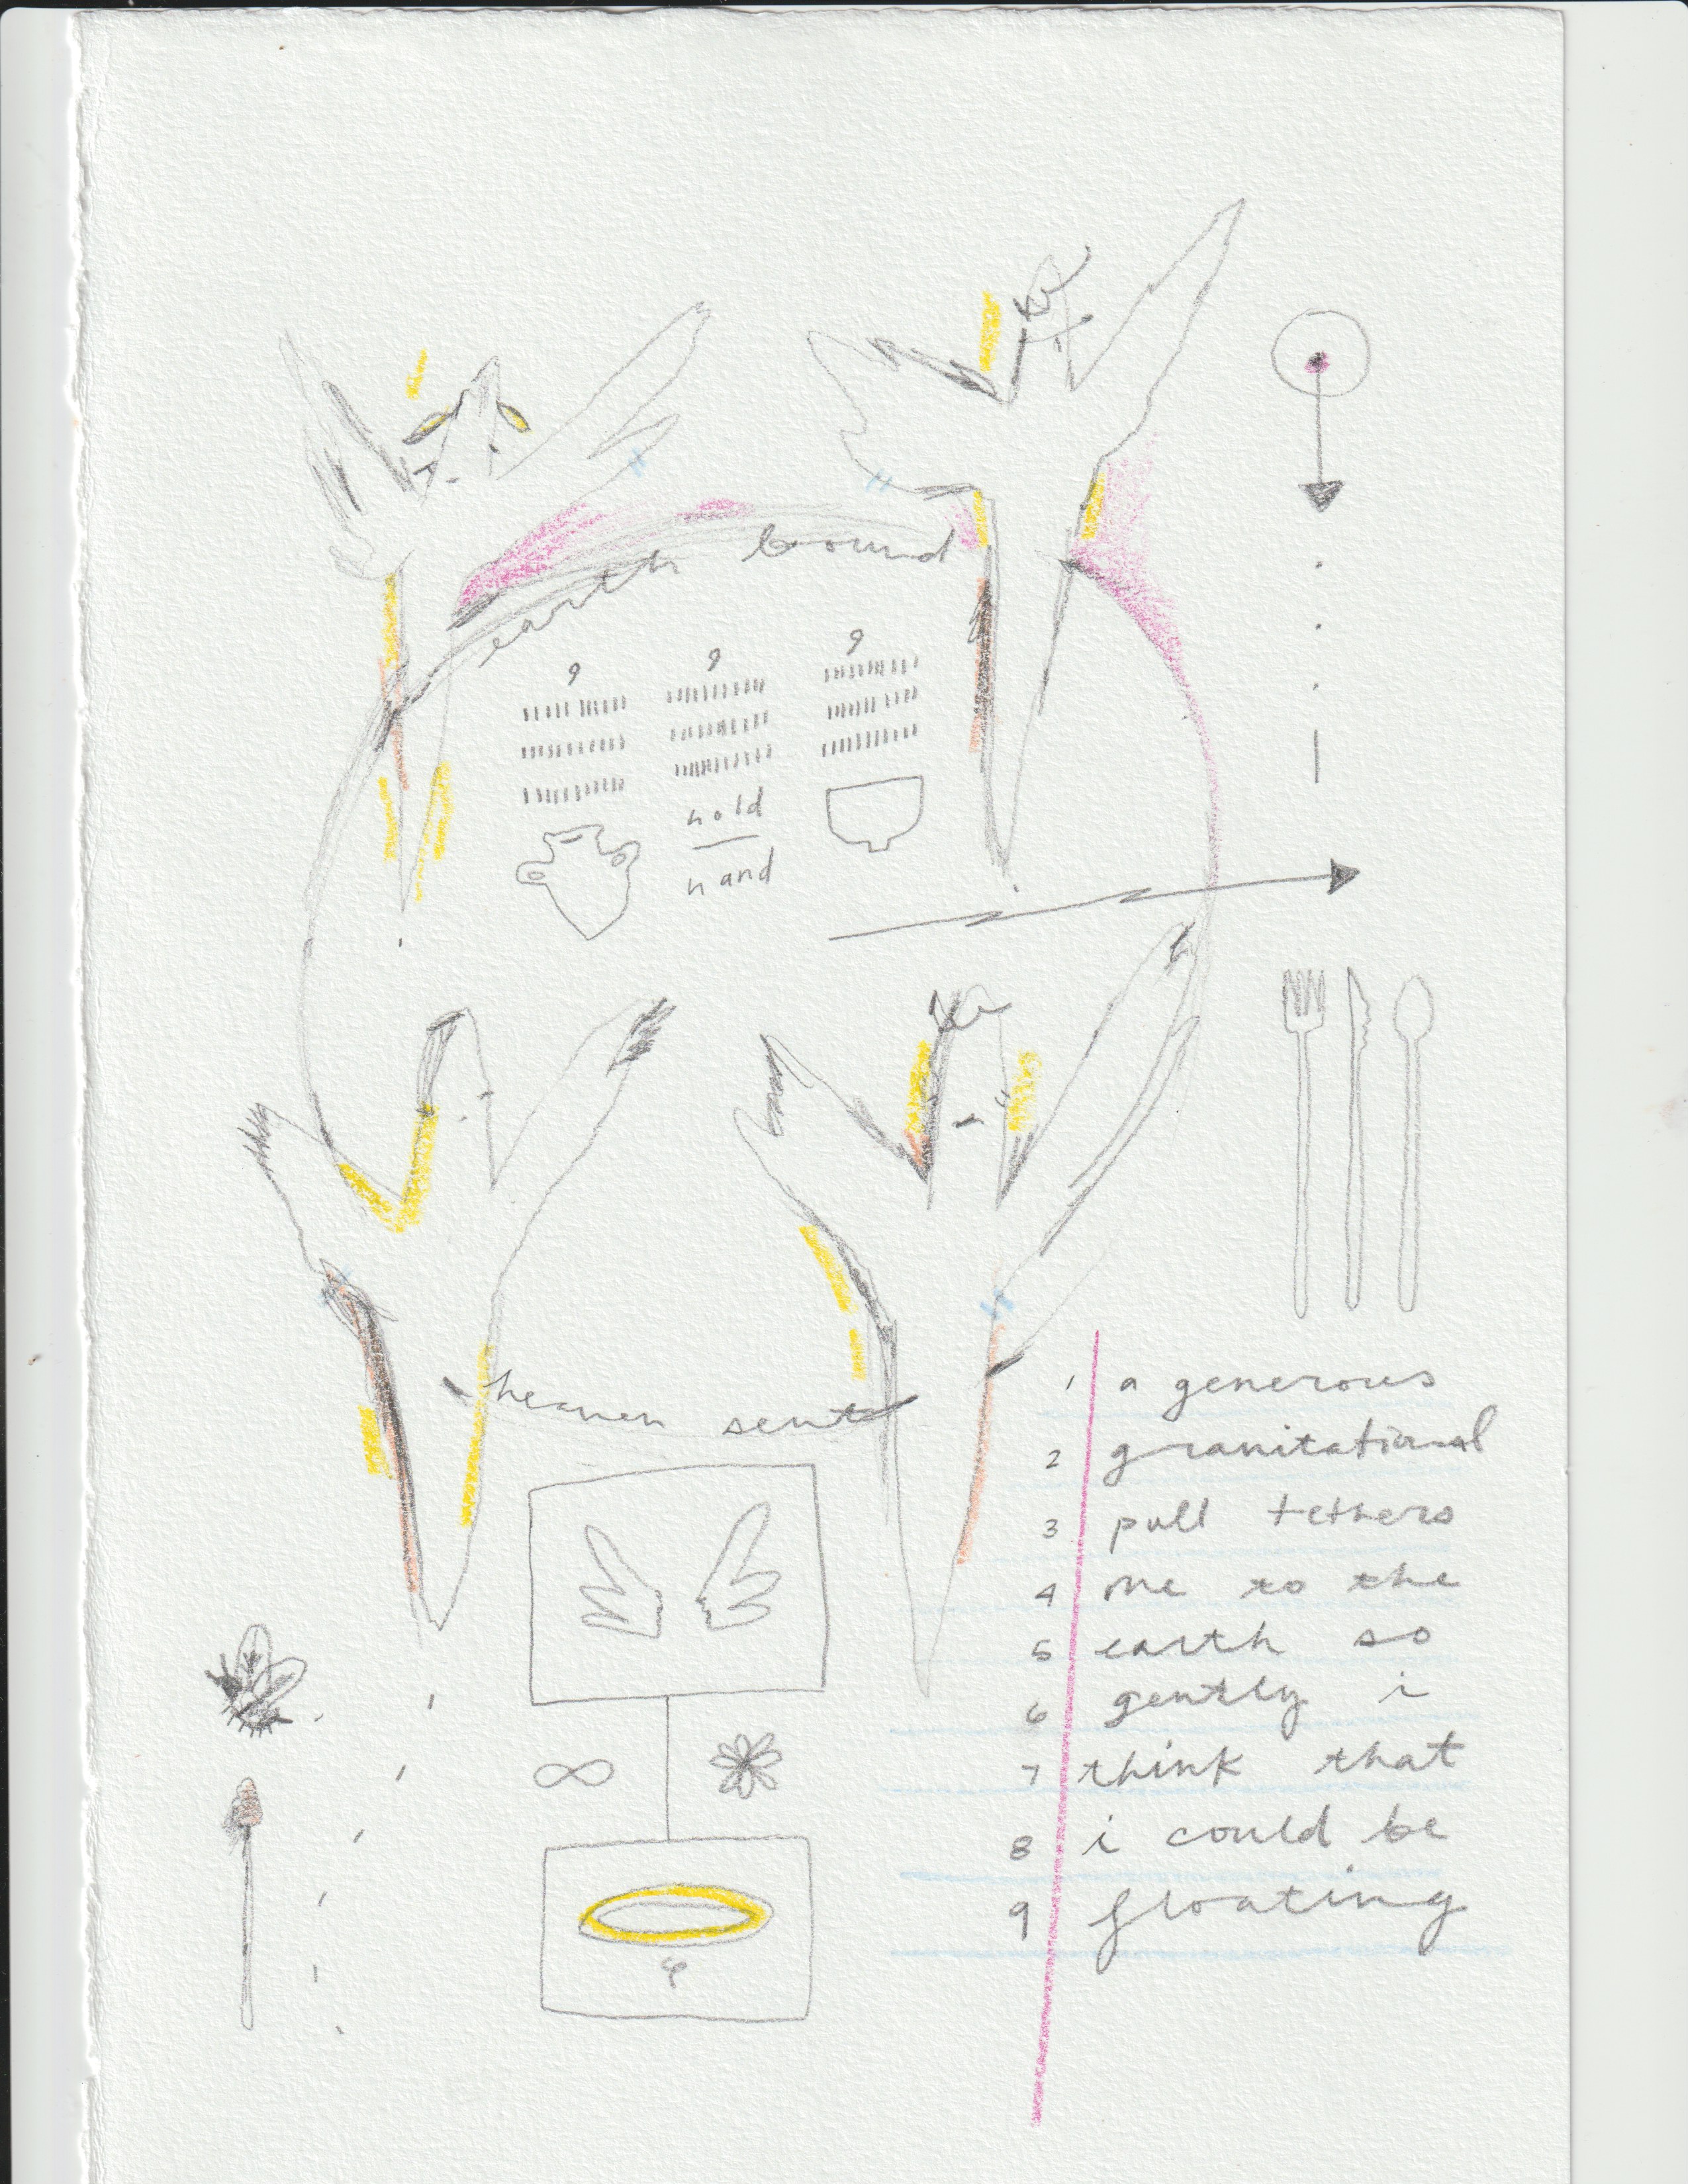 earth bound
9 9 9
hold
hand
heaven sent
1 a generous
2 gravitational
3 pull tethers
4 me to the
5 earth so
6 gently i
7 think that
8 i could be
9 floating
∞